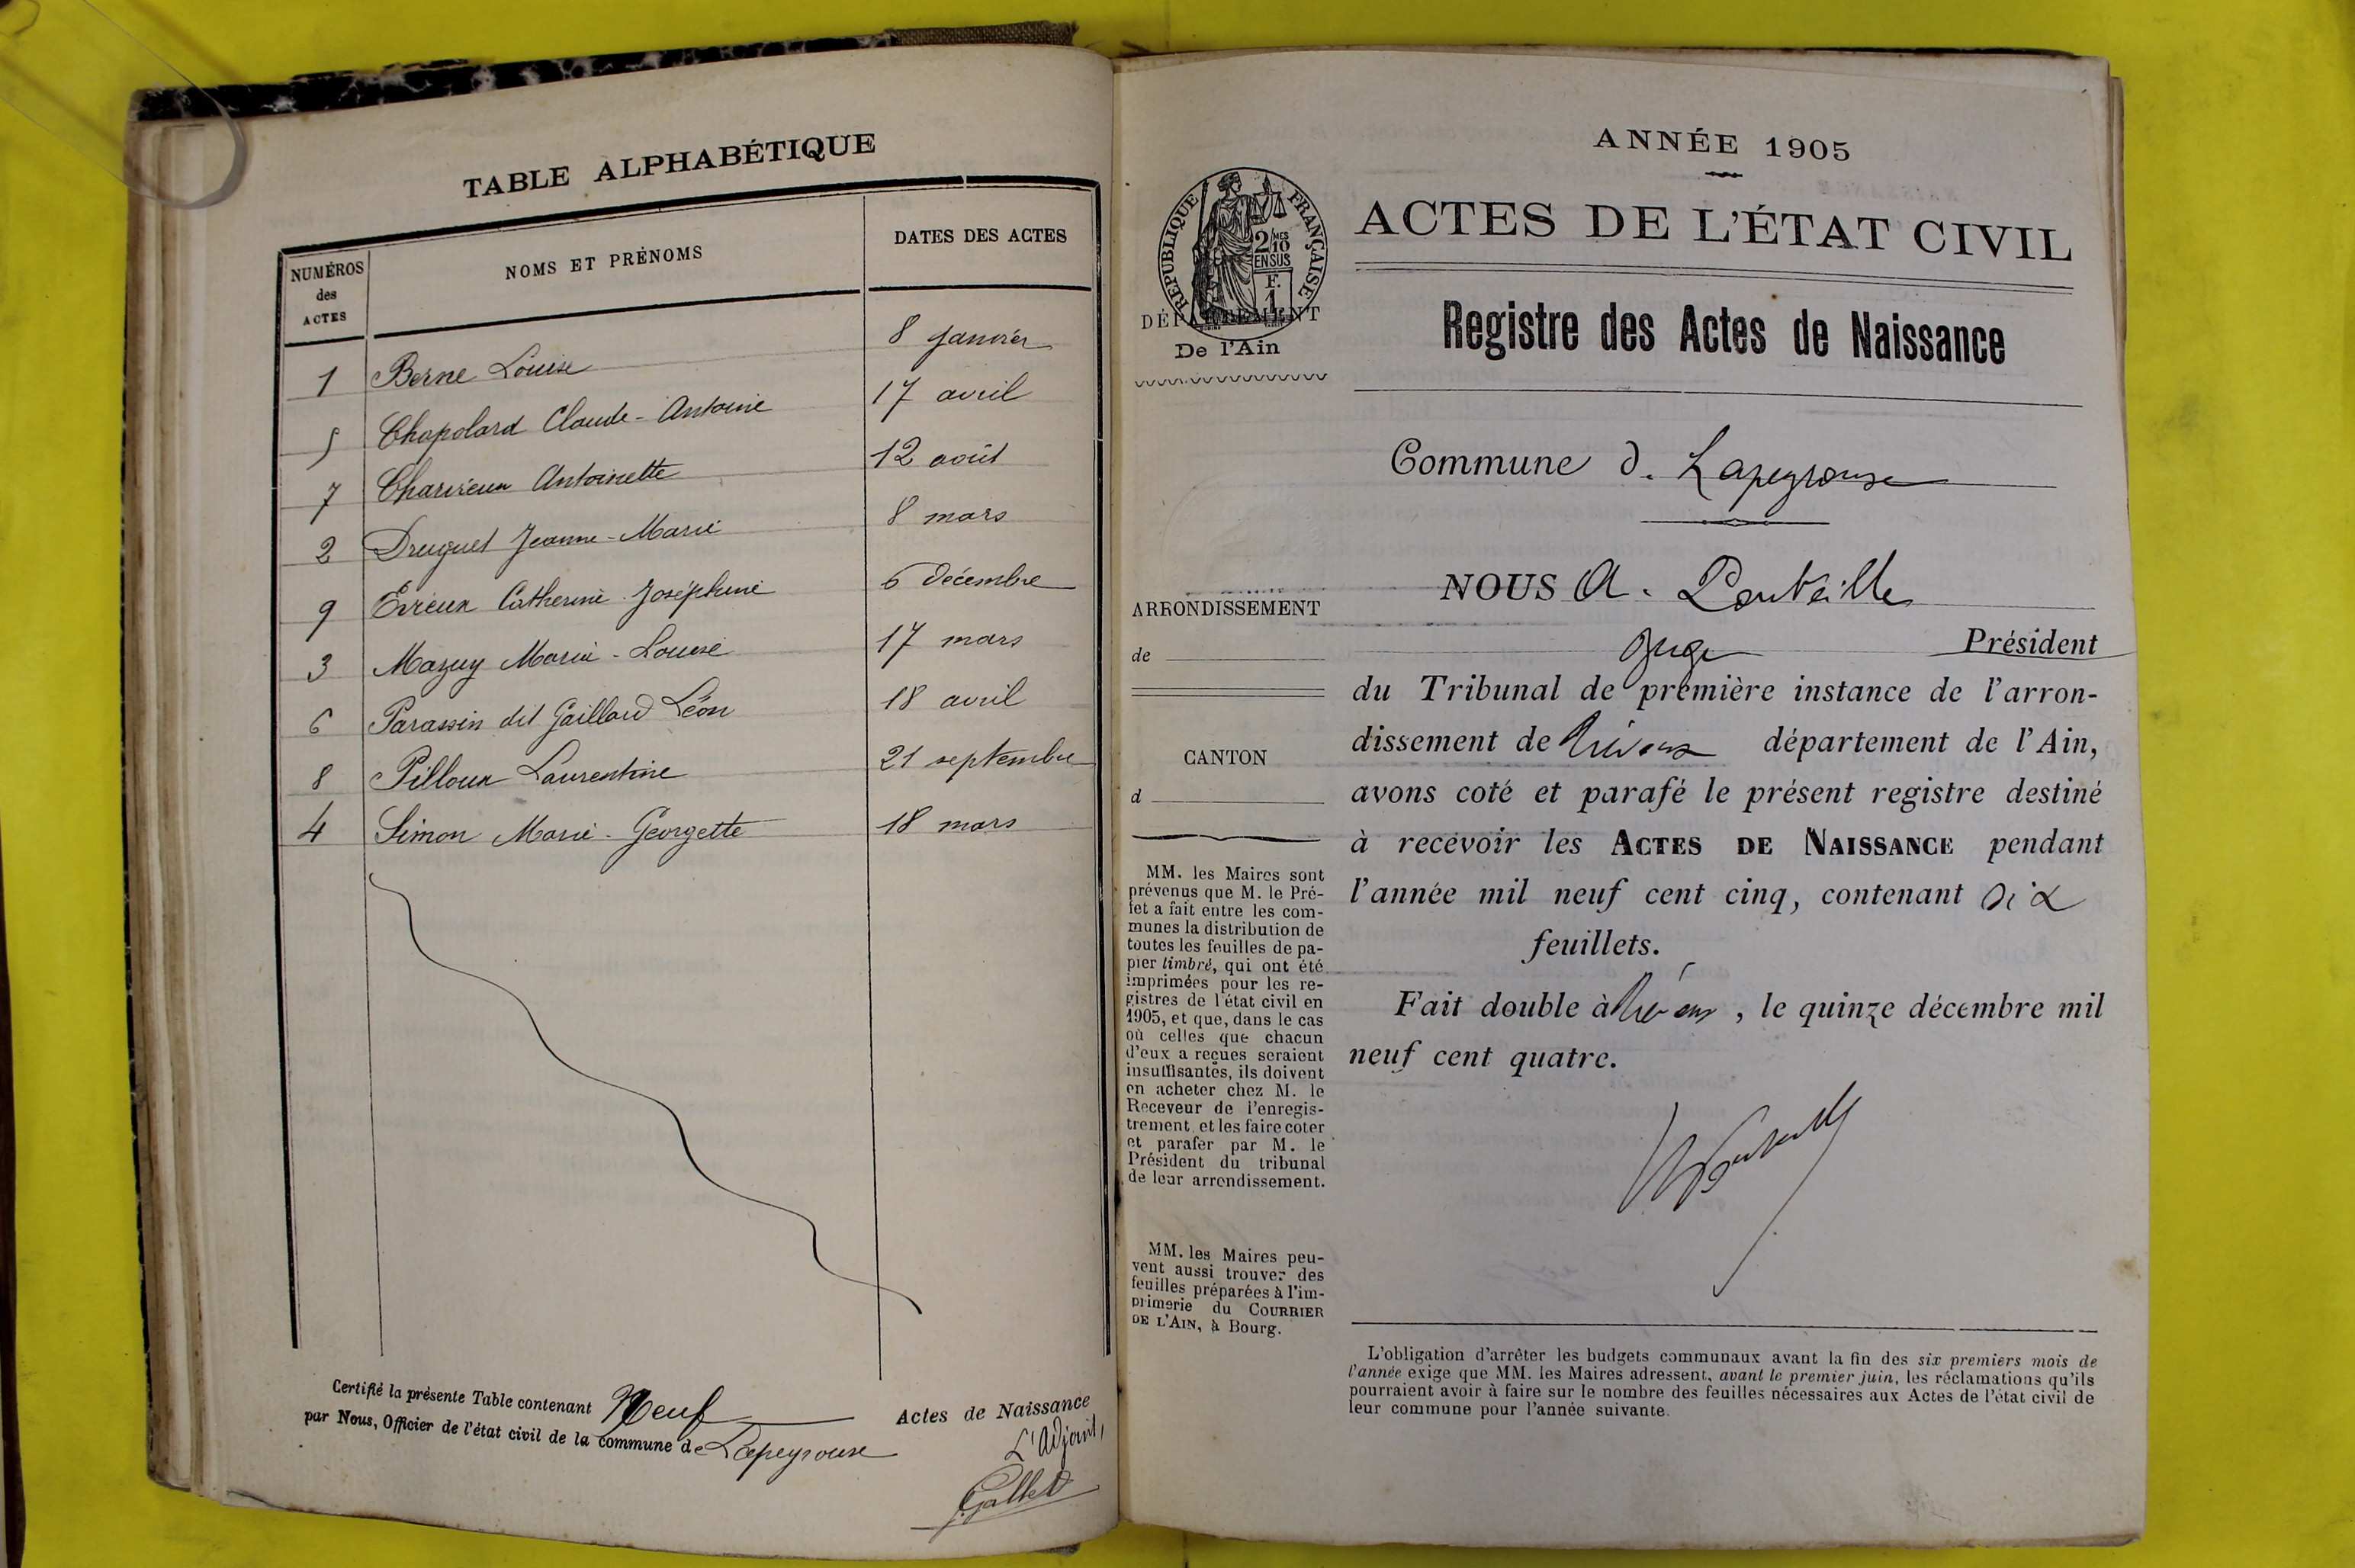 TABLE ALPHABÉTIQUE
NUMÉROS des ACTES NOMS ET PRÉNOMS DATES DES ACTES
1 Berne Louise 8 janvier
5 Chapolard Claude-Antoine 17 avril
7 Charvieux Antoinette 12 août
2 Druguet Jeanne-Marie 8 mars
9 Evieux Catherine-Joséphine 6 décembre
3 Mazuy Marie-Louise 17 mars
6 Parassin dit Gaillard Léon 18 avril
8 Pilloux Laurentine 21 septembre
4 Simon Marie-Georgette 18 mars
Certifié la présente Table contenant Neuf Actes de Naissance
par Nous, Officier de l'état civil de la commune de Lapeyrouse
L'Adjoint,
Gallet
ANNÉE 1905
ACTES DE L'ÉTAT CIVIL
Registre des Actes de Naissance
RÉPUBLIQUE FRANÇAISE
2/10MES
EN SUS
F.
1
DÉPARTEMENT
De l'Ain
Commune d. Lapeyrouse
NOUS A. Pouteille
Juge Président
du Tribunal de première instance de l'arron-
dissement de Trévoux département de l'Ain,
avons coté et parafé le présent registre destiné
à recevoir les ACTES DE NAISSANCE pendant
l'année mil neuf cent cinq, contenant dix
feuillets.
Fait double à Trévoux, le quinze décembre mil
neuf cent quatre.
ARRONDISSEMENT
de
CANTON
d
MM. les Maires sont
prévenus que M. le Pré-
fet a fait entre les com-
munes la distribution de
toutes les feuilles de pa-
pier timbré, qui ont été
imprimées pour les re-
gistres de l'état civil en
1905, et que, dans le cas
où celles que chacun
d'eux a reçues seraient
insuffisantes, ils doivent
en acheter chez M. le
Receveur de l'enregis-
trement et les faire coter
et parafer par M. le
Président du tribunal
de leur arrondissement.
MM. les Maires peu-
vent aussi trouver des
feuilles préparées à l'im-
primerie du COURRIER
DE L'AIN, à Bourg.
L'obligation d'arrêter les budgets communaux avant la fin des six premiers mois de
l'année exige que MM. les Maires adressent, avant le premier juin, les réclamations qu'ils
pourraient avoir à faire sur le nombre des feuilles nécessaires aux Actes de l'état civil de
leur commune pour l'année suivante.